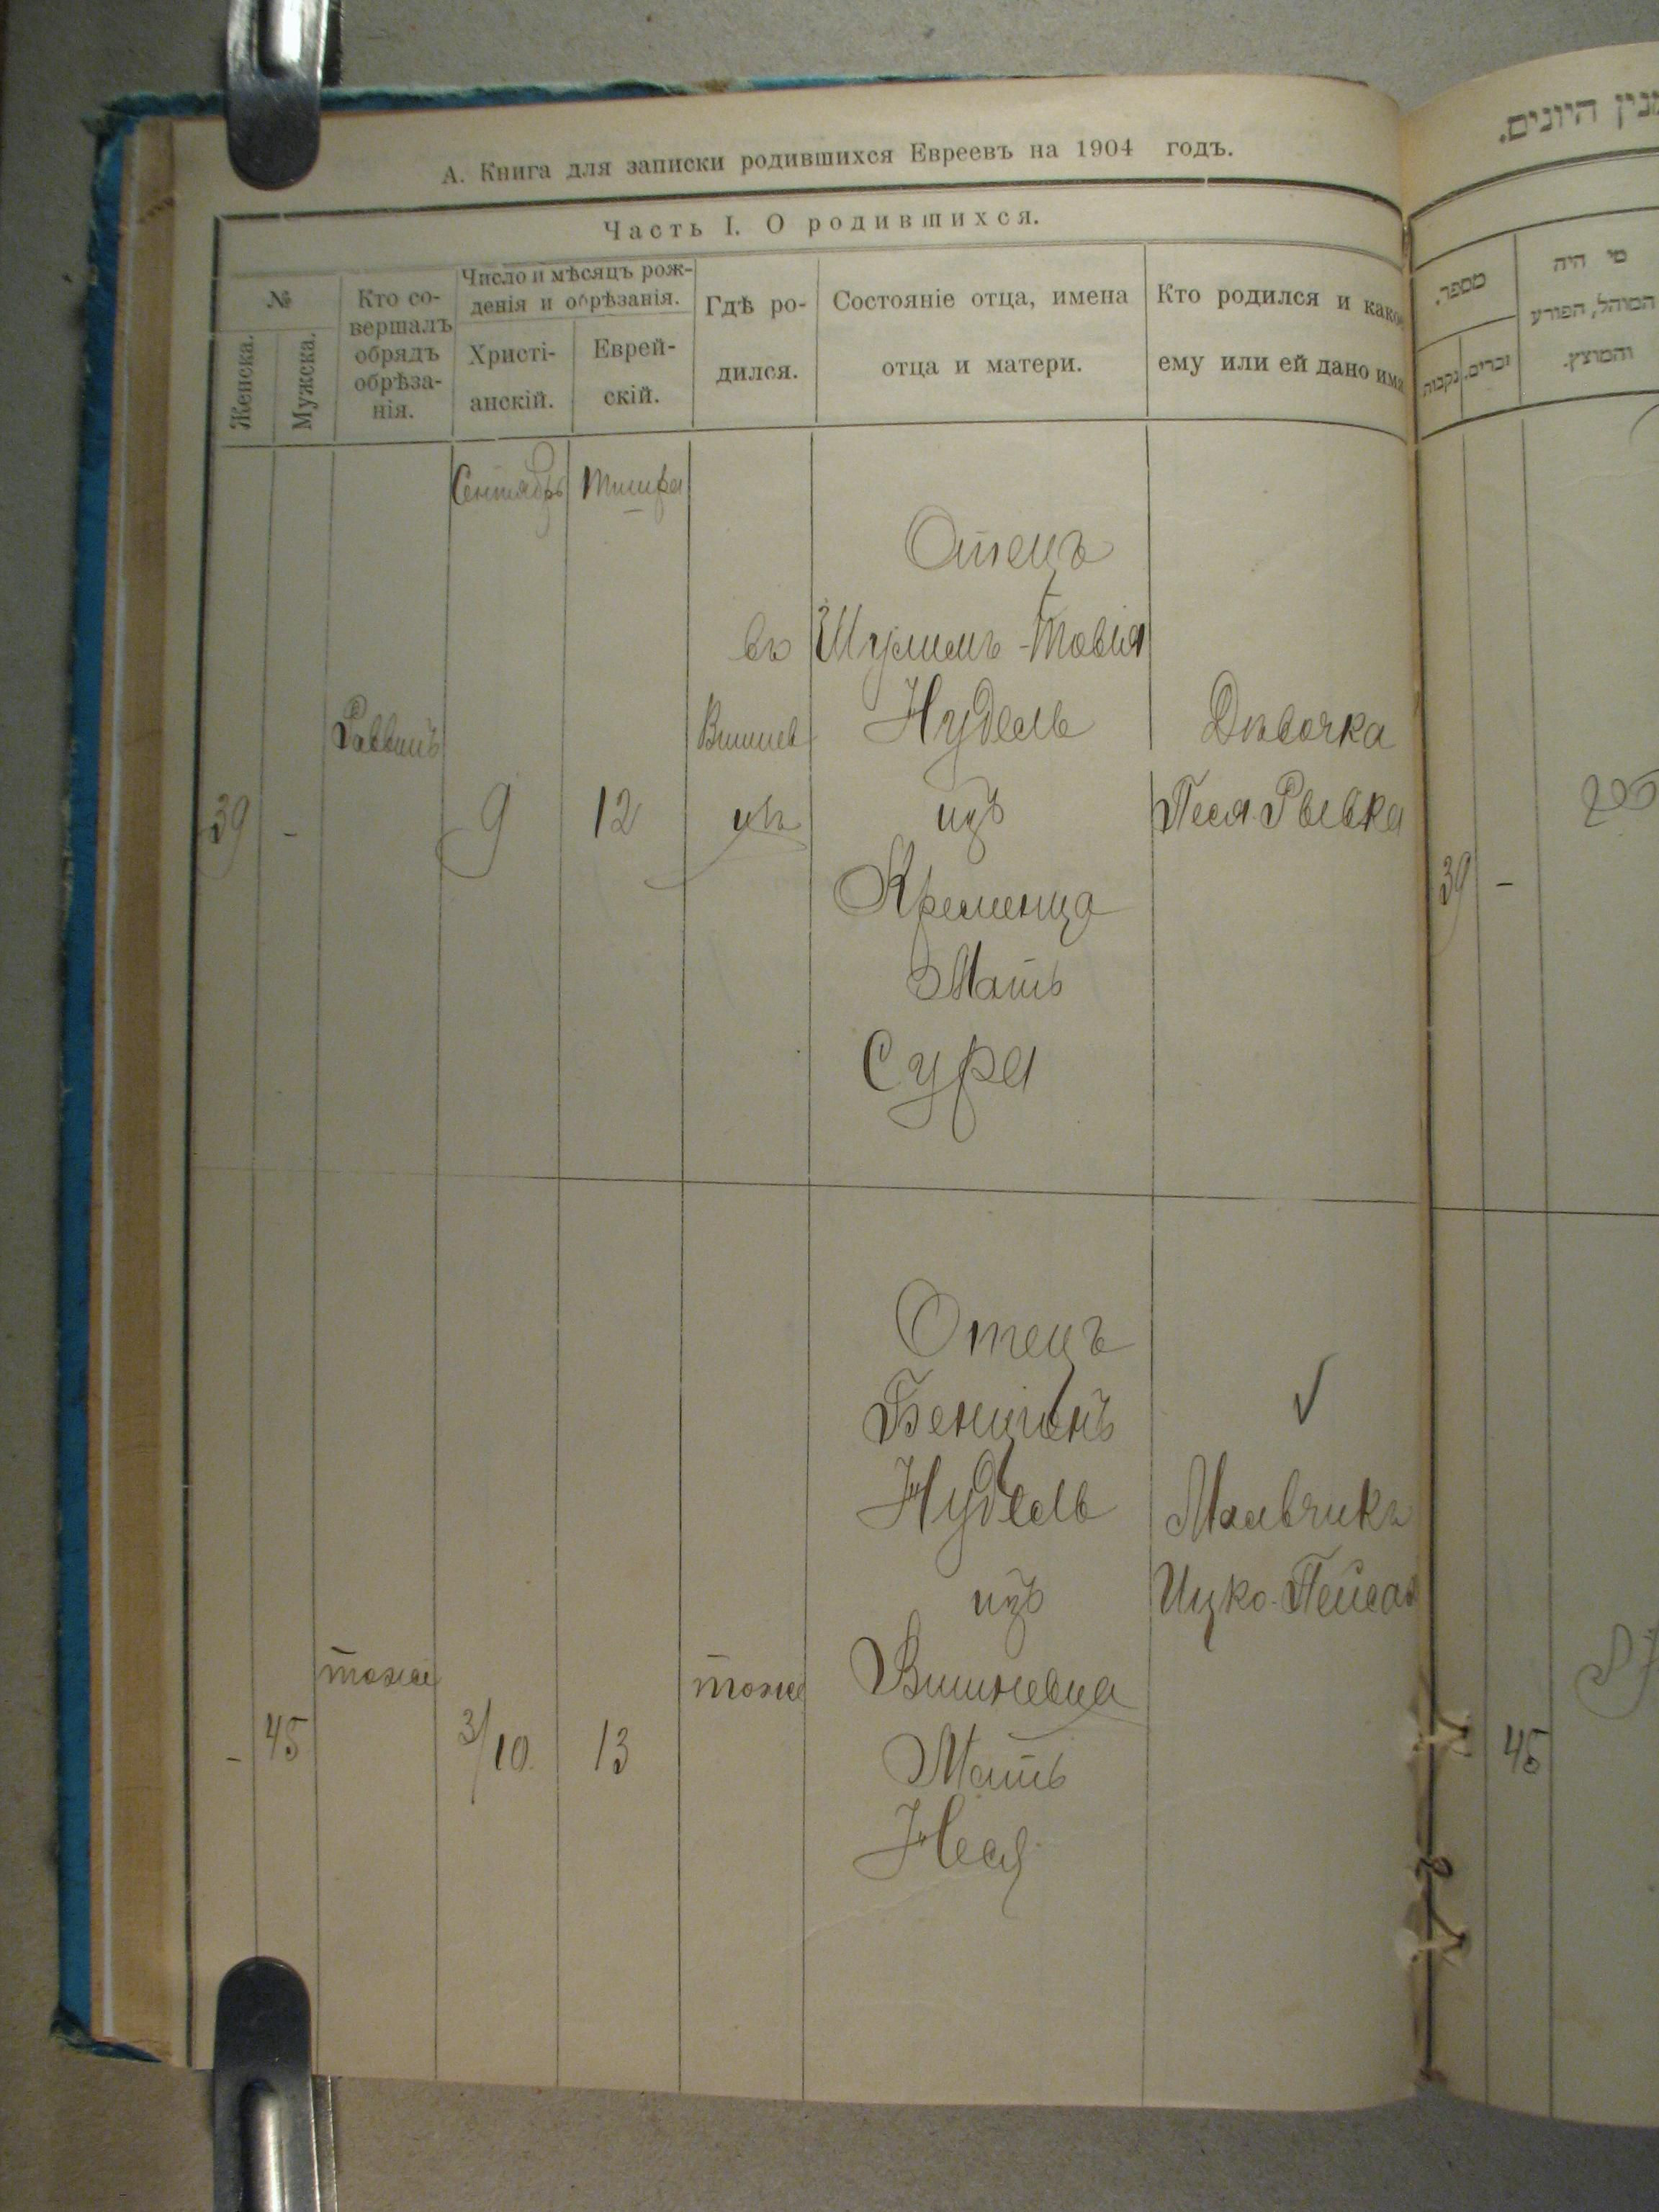 А. Книга для записки родившихся Евреевъ на 1904 годъ.
Часть I. О родившихся.
№
Женска.
Мужска.
Кто со-
вершалъ
обрядъ
обрѣза-
нія.
Число и мѣсяцъ рож-
денія и обрѣзанія.
Христі-
анскій.
Еврей-
скій.
Гдѣ ро-
дился.
Состояніе отца, имена
отца и матери.
Кто родился и како
ему или ей дано имя
Сентябрь
Тишра
39
-
9
12
въ
Вишнев
цѣ
Отецъ
Шулимъ-Товія
Нудель
изъ
Кременца
Мать
Сура
Дѣвочка
Песя-Рывка
-
45
тоже
3/10
13
тоже
Отецъ
Бенціонъ
Нудель
изъ
Вишневца
Мать
Неся
✓
Мальчикъ
Ицко-Пейсах
היונים.
מספר.
נקבות
זכרים.
מי היה
המוהל, הפורע
והמוצץ.
39 -
45